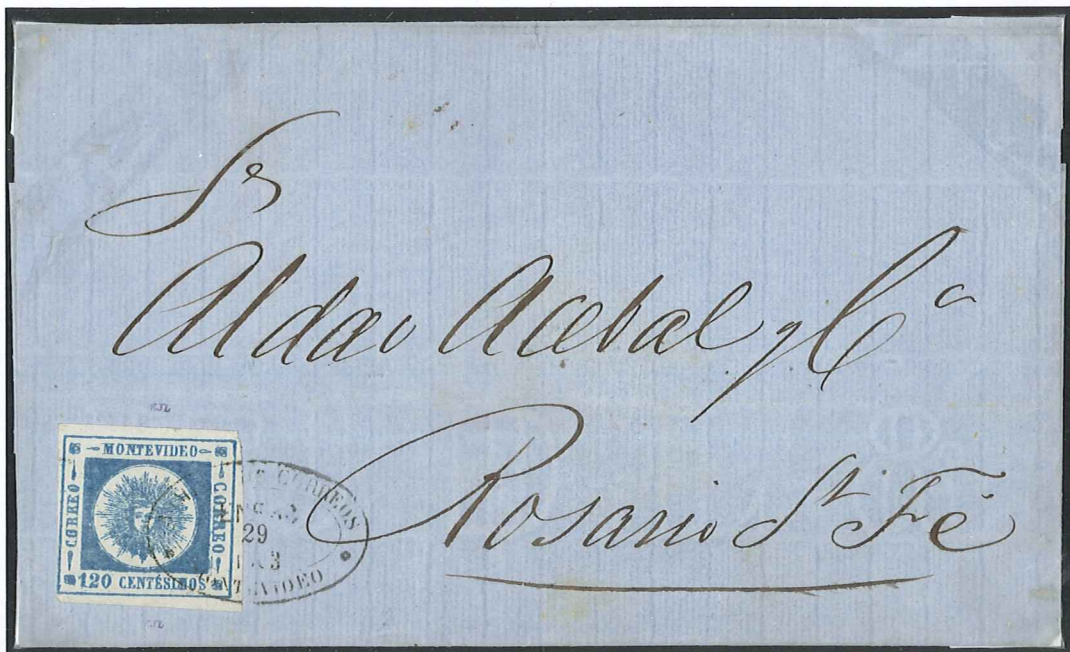 Sr
Aldao Acebal y Cª
Rosario St Fé
MONTEVIDEO
CORREO
CORREO
120 CENTÉSIMOS
DE CORREOS
29
MONTEVIDEO